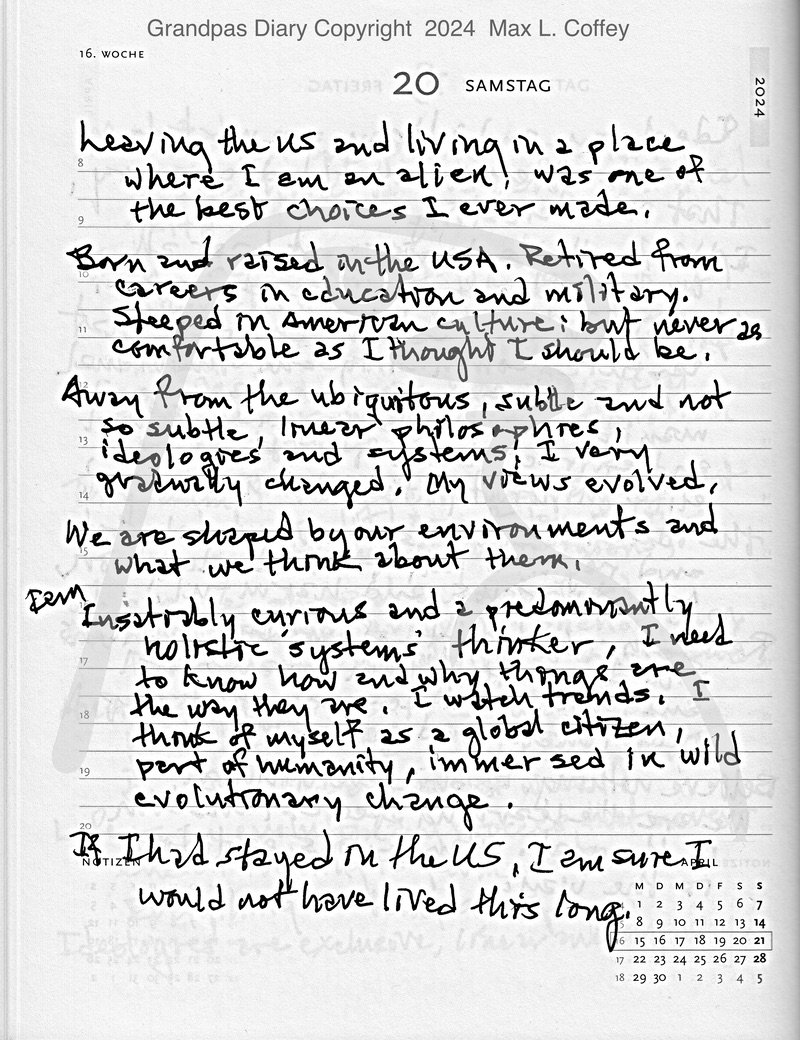 Grandpas Diary Copyright 2024 Max L. Coffey
16. WOCHE
20 SAMSTAG
2024
Leaving the US and living in a place
where I am an alien, was one of
the best choices I ever made.
Born and raised in the USA. Retired from
careers in education and military.
Steeped in American culture; but never as
comfortable as I thought I should be.
Away from the ubiquitous, subtle and not
so subtle, linear philosophies,
ideologies and systems, I very
gradually changed. My views evolved.
We are shaped by our environments and
what we think about them.
I am
Insatiably curious and a predominantly
holistic 'systems' thinker, I need
to know how and why things are
the way they are. I watch trends. I
think of myself as a global citizen,
part of humanity, immersed in wild
evolutionary change.
If I had stayed in the US, I am sure I
would not have lived this long.
8
9
10
11
12
13
14
15
17
18
19
20
NOTIZEN
APRIL
M D M D F S S
1 2 3 4 5 6 7
8 9 10 11 12 13 14
16 15 16 17 18 19 20 21
17 22 23 24 25 26 27 28
18 29 30 1 2 3 4 5